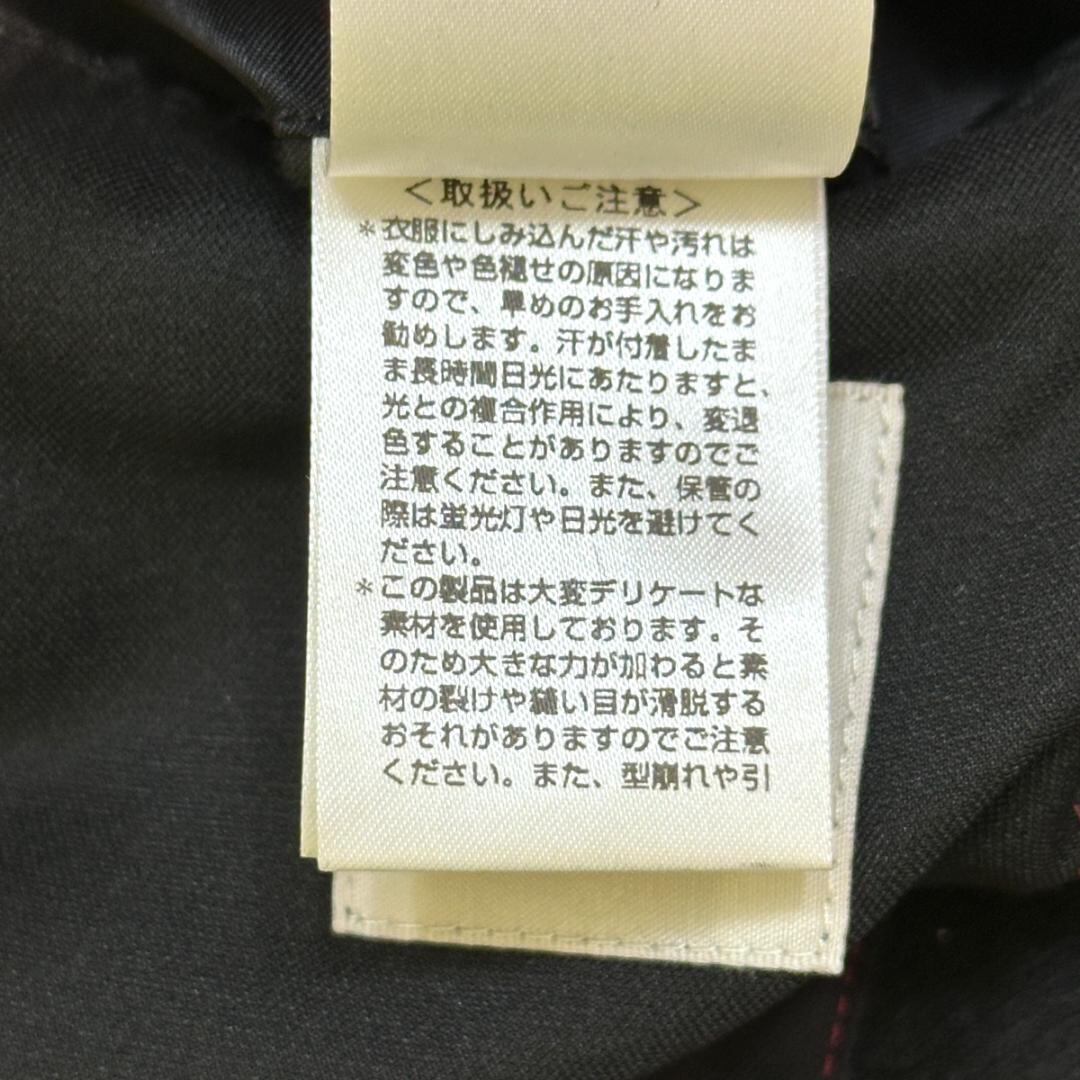 ＜取扱いご注意＞
＊衣服にしみ込んだ汗や汚れは
変色や色褪せの原因になりま
すので、早めのお手入れをお
勧めします。汗が付着したま
ま長時間日光にあたりますと、
光との複合作用により、変退
色することがありますのでご
注意ください。また、保管の
際は蛍光灯や日光を避けてく
ださい。
＊この製品は大変デリケートな
素材を使用しております。そ
のため大きな力が加わると素
材の裂けや縫い目が滑脱する
おそれがありますのでご注意
ください。また、型崩れや引